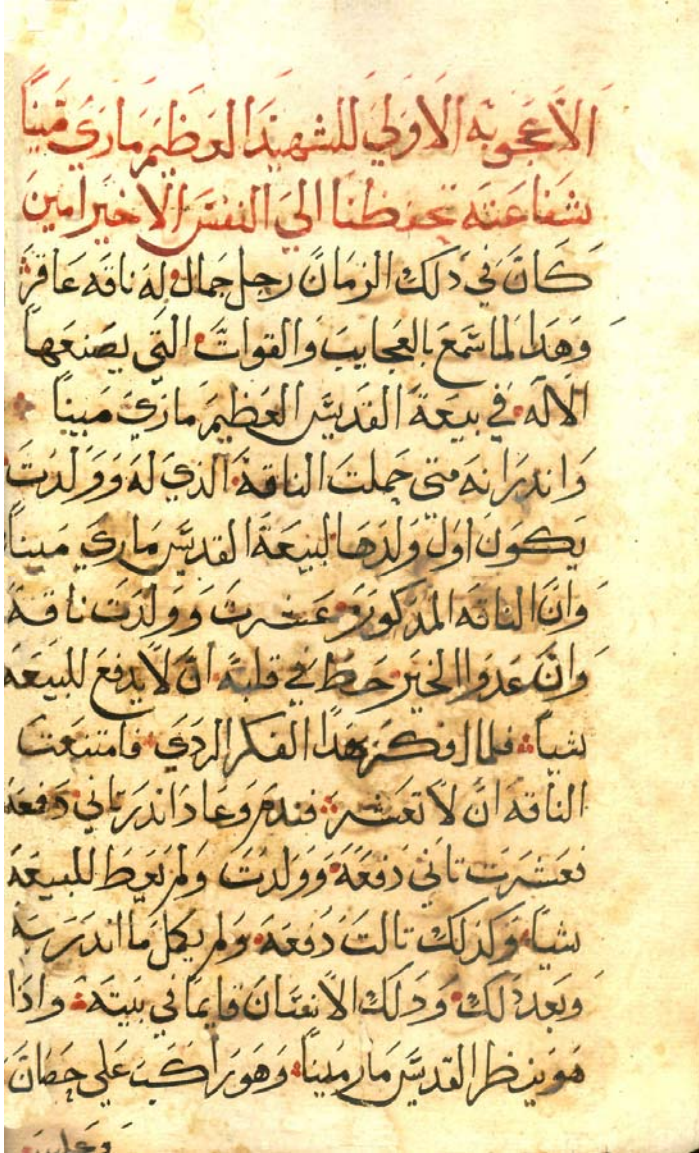 الاعجوبه الاولي للشهيد العظيم ماري مينا
شفاعته تحفظنا الي النفس الاخير امين
كان في دلك الزمان رجل جمال وله ناقه عاقر
وهدا لما سمع بالعجايب والقوات التي يصنعها
الاله في بيعة القديس العظيم ماري مينا
واندر انه متي حملت الناقة الذي له وولدت
يكون اول ولدها لبيعة القديس ماري مينا
وان الناقه المدكوره عشرت وولدت ناقة
وان عدوا الخير حط في قلبه ان لا يدفع للبيعه
شيا فلما افكر بهدا الفكر الردي فامتنعت
الناقه ان لا تعشر فندم وعاد اندر تاني دفعه
فعشرت تاني دفعه وولدت ولم يعط للبيعه
شيا وكذلك تالت دفعه ولم يكمل ما اندر به
وبعد دلك ودلك الانسان قايما في بيته وادا
هو ينظر القديس مار مينا وهو راكب علي حصان